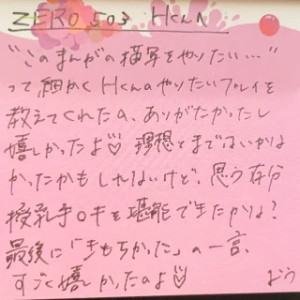 ZERO 503 Hくん
"このまんがの描写をやりたい…"
って細かくHくんやりたいプレイを
教えてくれたの、ありがたかったし
嬉しかったよ♡ 理想とまではいかな
かったかもしれないけど、思う存分
授乳手○キを堪能できたかな?
最後に「きもちかった」の一言、
すごく嬉しかったのよ♡